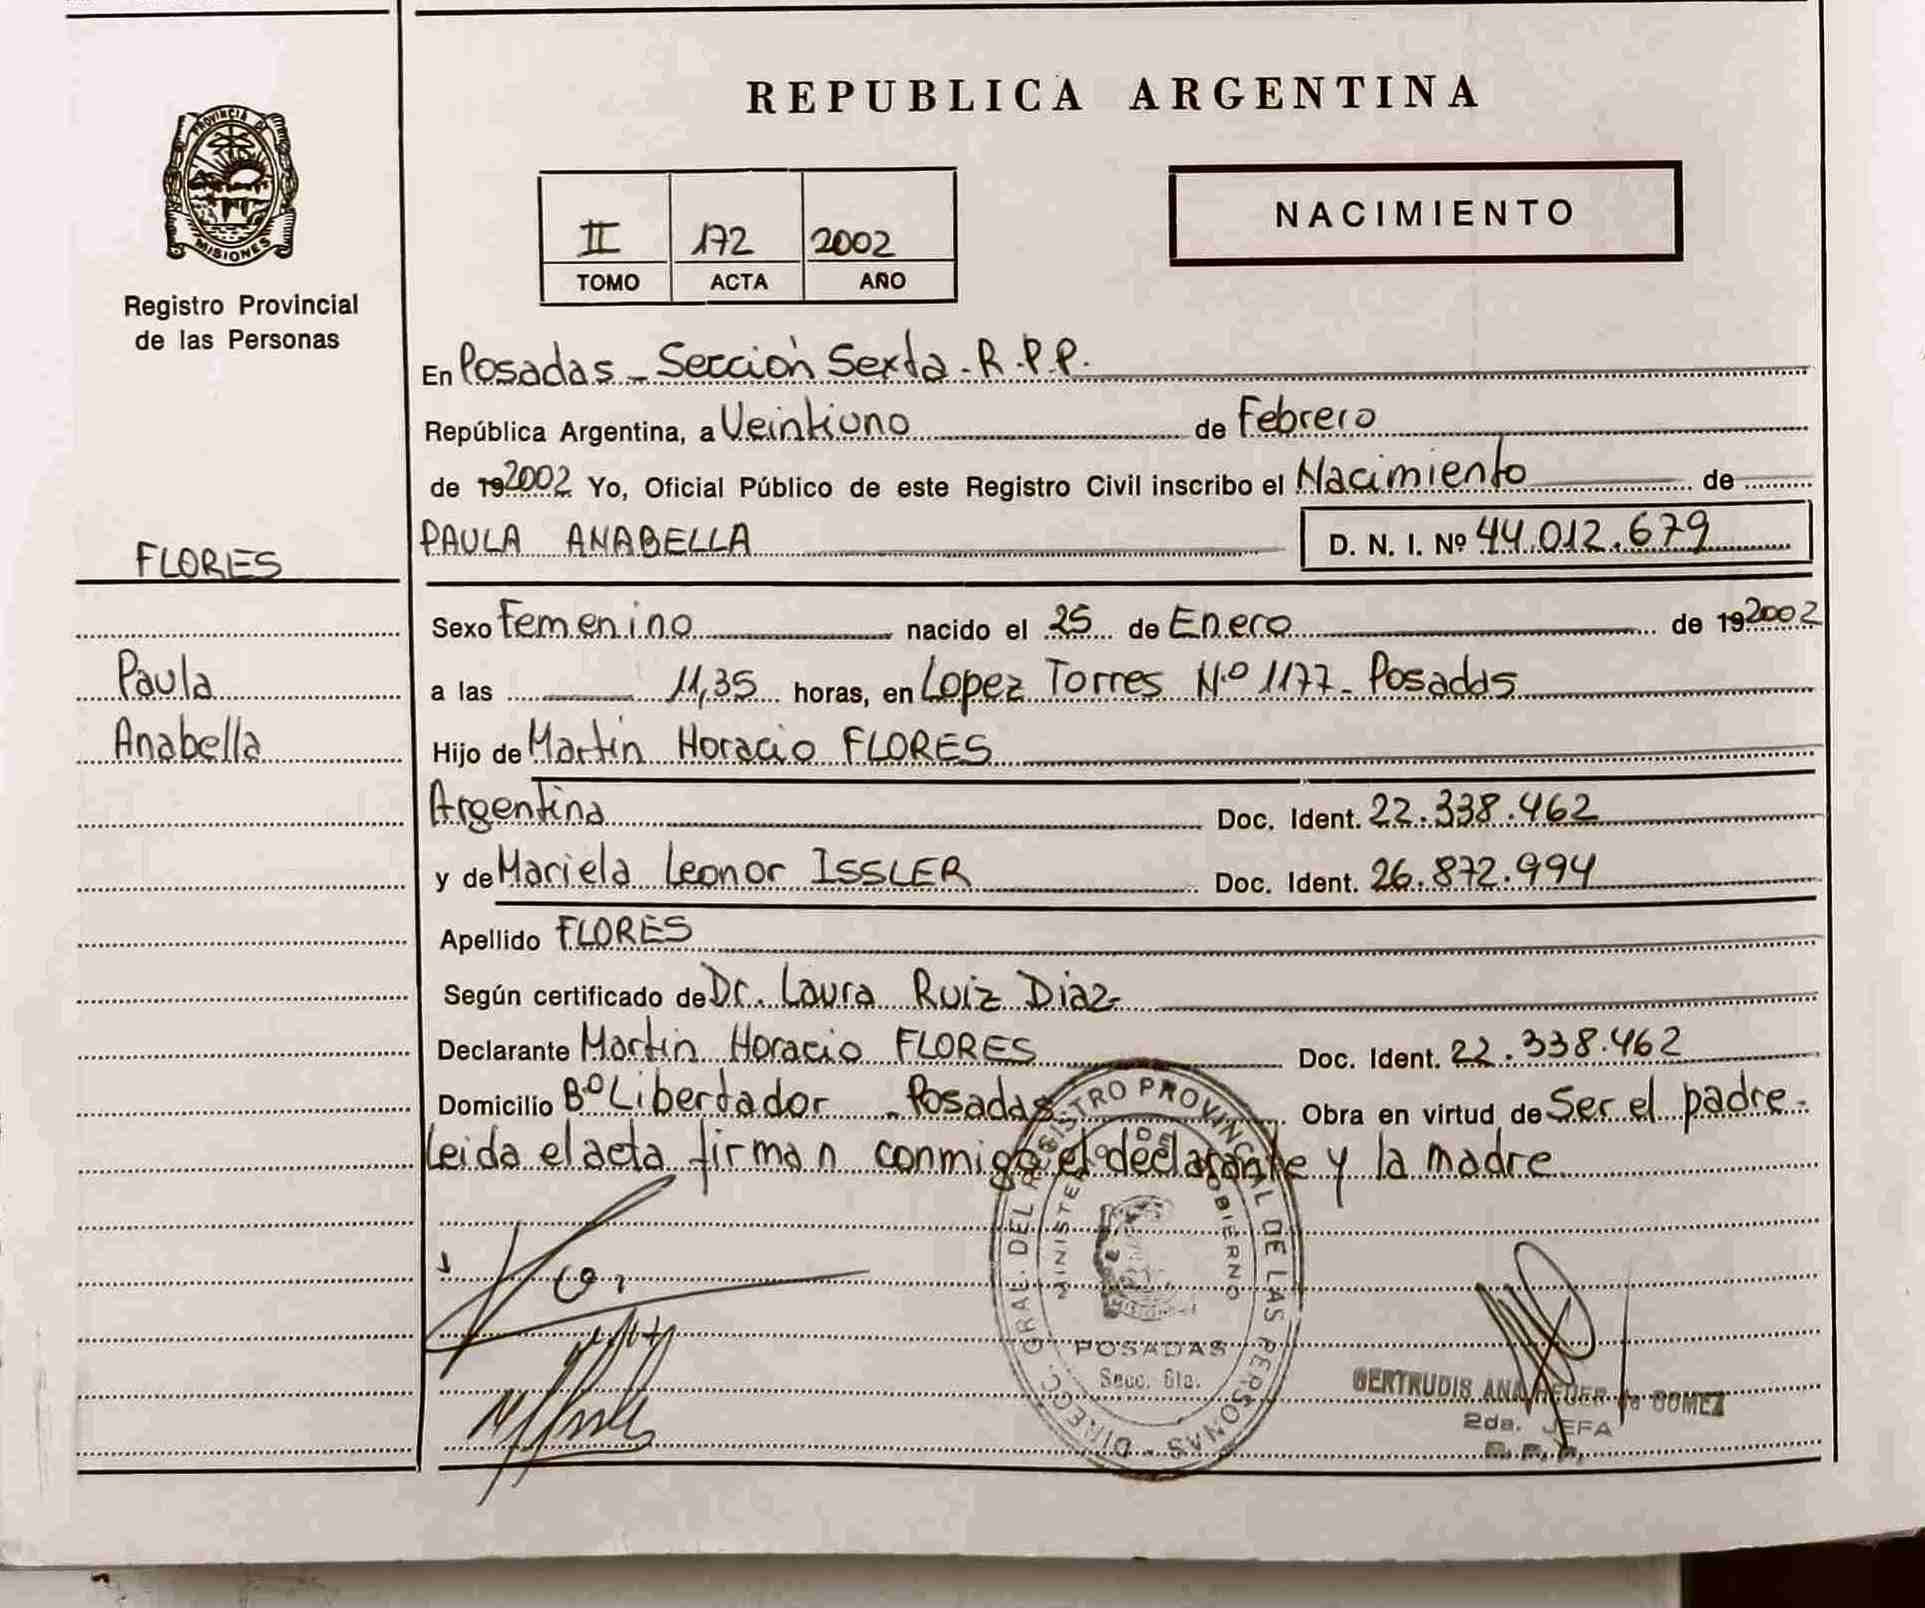 REPUBLICA ARGENTINA
PROVINCIA DE
MISIONES
Registro Provincial
de las Personas
NACIMIENTO
II 172 2002
TOMO ACTA AÑO
En Posadas - Sección Sexta - R.P.P.
República Argentina, a Veintiuno de Febrero
de 192002 Yo, Oficial Público de este Registro Civil inscribo el Nacimiento de
PAULA ANABELLA D. N. I. Nº 44.012.679
FLORES
Paula
Anabella
Sexo Femenino nacido el 25 de Enero de 192002
a las 11,35 horas, en Lopez Torres N.º 1177 - Posadas
Hijo de Martin Horacio FLORES
Argentina Doc. Ident. 22.338.462
y de Mariela Leonor ISSLER Doc. Ident. 26.872.994
Apellido FLORES
Según certificado de Dr. Laura Ruiz Diaz-
Declarante Martin Horacio FLORES Doc. Ident. 22.338.462
Domicilio Bº Libertador - Posadas Obra en virtud de Ser el padre-
Leida el acta firman conmigo el declarante y la madre
DIRECC. GRAL. DEL REGISTRO PROVINCIAL DE LAS PERSONAS
MINISTERIO DE GOBIERNO
POSADAS
Secc. 6ta.
GERTRUDIS ANA de GOMEZ
2da. JEFA